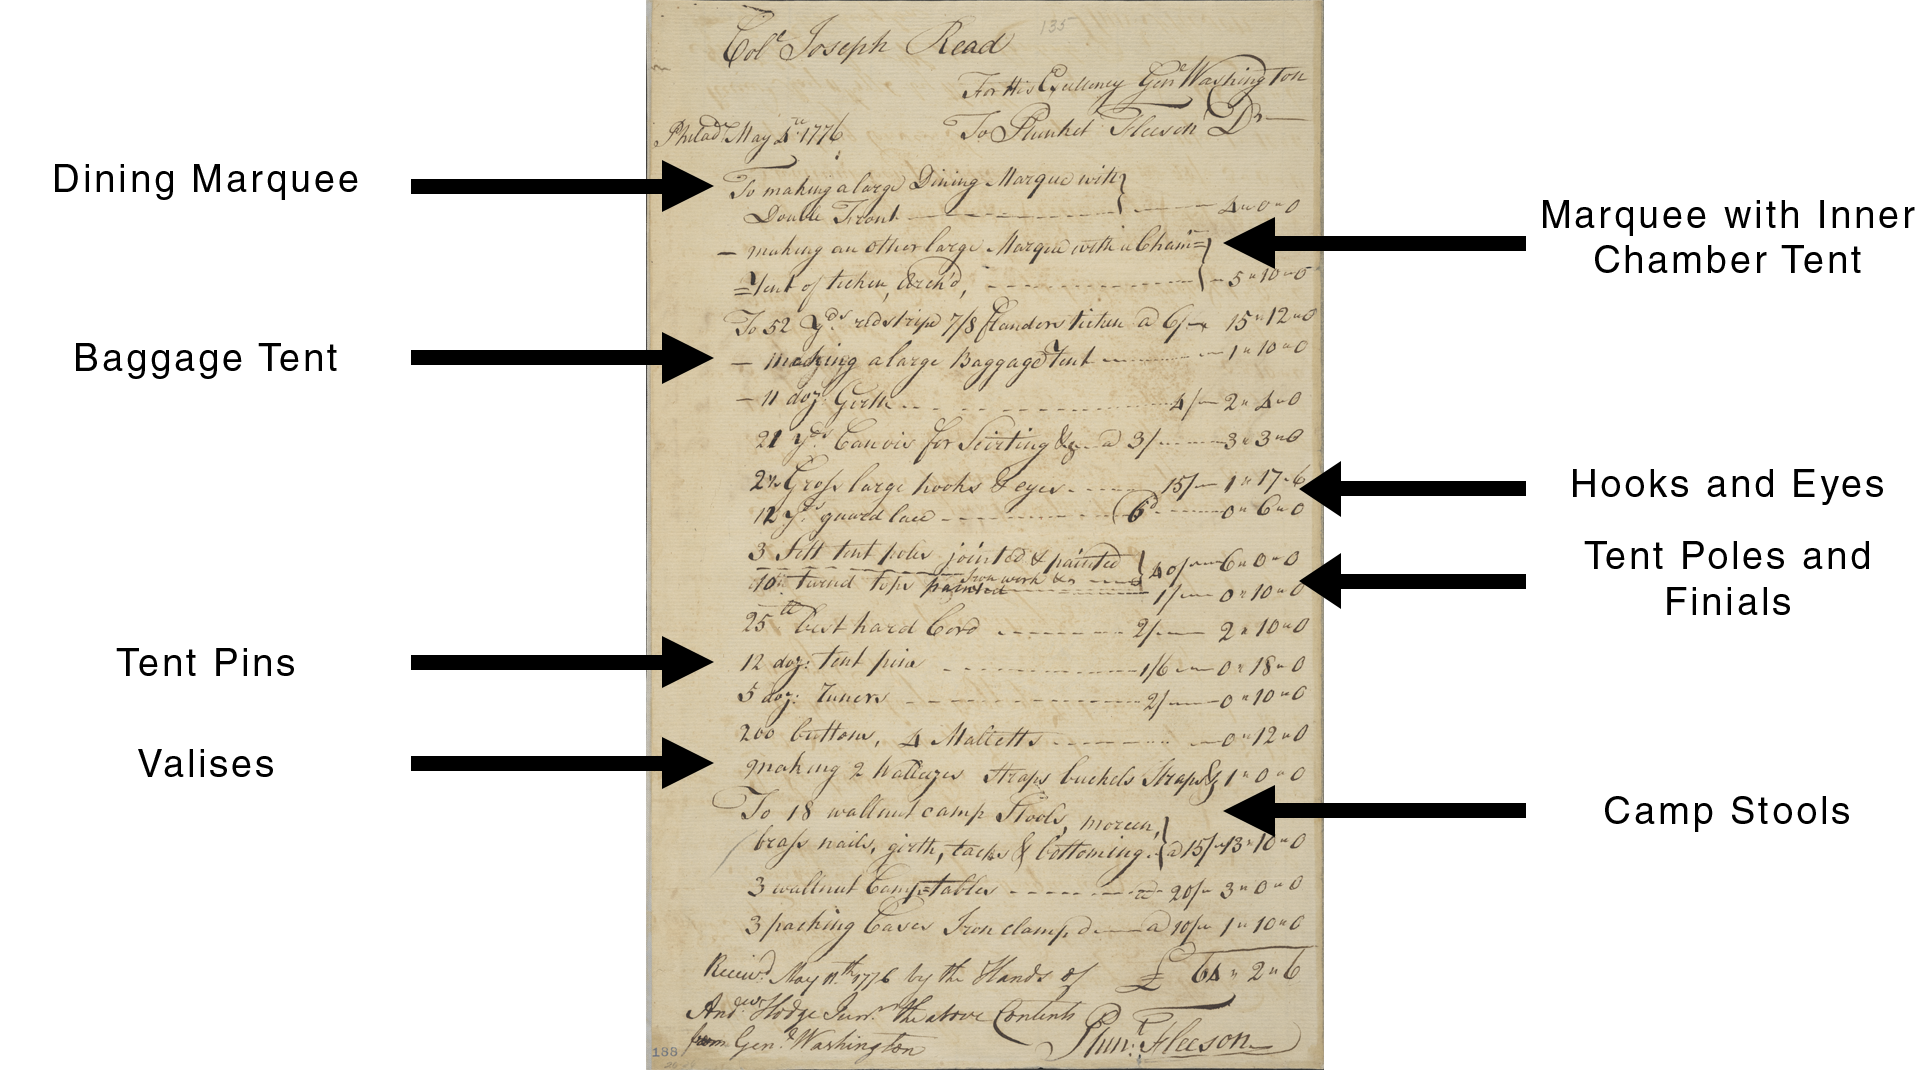 135
Col.o Joseph Read
For His Excellency Gen.l Washington
To Plunket Fleeson Dr
Philad.a May 4th 1776
To making a large Dining Marque with
Double Front 4 " 0 " 0
making an other large Marque with a Cham=
=Tent of ticken, Arch'd, 5 " 10 " 0
To 52 Yds. red stripe 7/8 flanders ticken @ 6/ 15 " 12 " 0
making a large Baggage Tent 1 " 10 " 0
11 doz: Girth 4/ 2 " 4 " 0
21 Yds. Canvis for Scirting &c @ 3/ 3 " 3 " 0
2½ Gross large hooks & eyes 15/ 1 " 17 " 6
12 Yds. guard lace 6d 0 " 6 " 0
3 sett tent poles jointed & painted 40/ 6 " 0 " 0
Iron work &c
10 turn'd tops painted 1/ 0 " 10 " 0
25 lb best hard Cord 2/ 2 " 10 " 0
12 doz: tent pins 1/6 0 " 18 " 0
5 doz: Tuners 2/ 0 " 10 " 0
200 buttons, 4 Malletts 0 " 12 " 0
making 2 Walleezes Straps buckels Straps & 1 " 0 " 0
To 18 wallnut camp Stools, moreen,
brass nails, girth, tacks & bottoming. @ 15/ 13 " 10 " 0
3 wallnut Camp=tables @ 20/ 3 " 0 " 0
3 packing Cases Iron clamp'd @ 10/ 1 " 10 " 0
Receiv'd May 11th 1776 by the Hands of £ 64 " 2 " 6
And.ew Hodge Jun.r the above Contents
from Gen.l Washington Plun.t Fleeson
188
Dining Marquee
Baggage Tent
Tent Pins
Valises
Marquee with Inner
Chamber Tent
Hooks and Eyes
Tent Poles and
Finials
Camp Stools